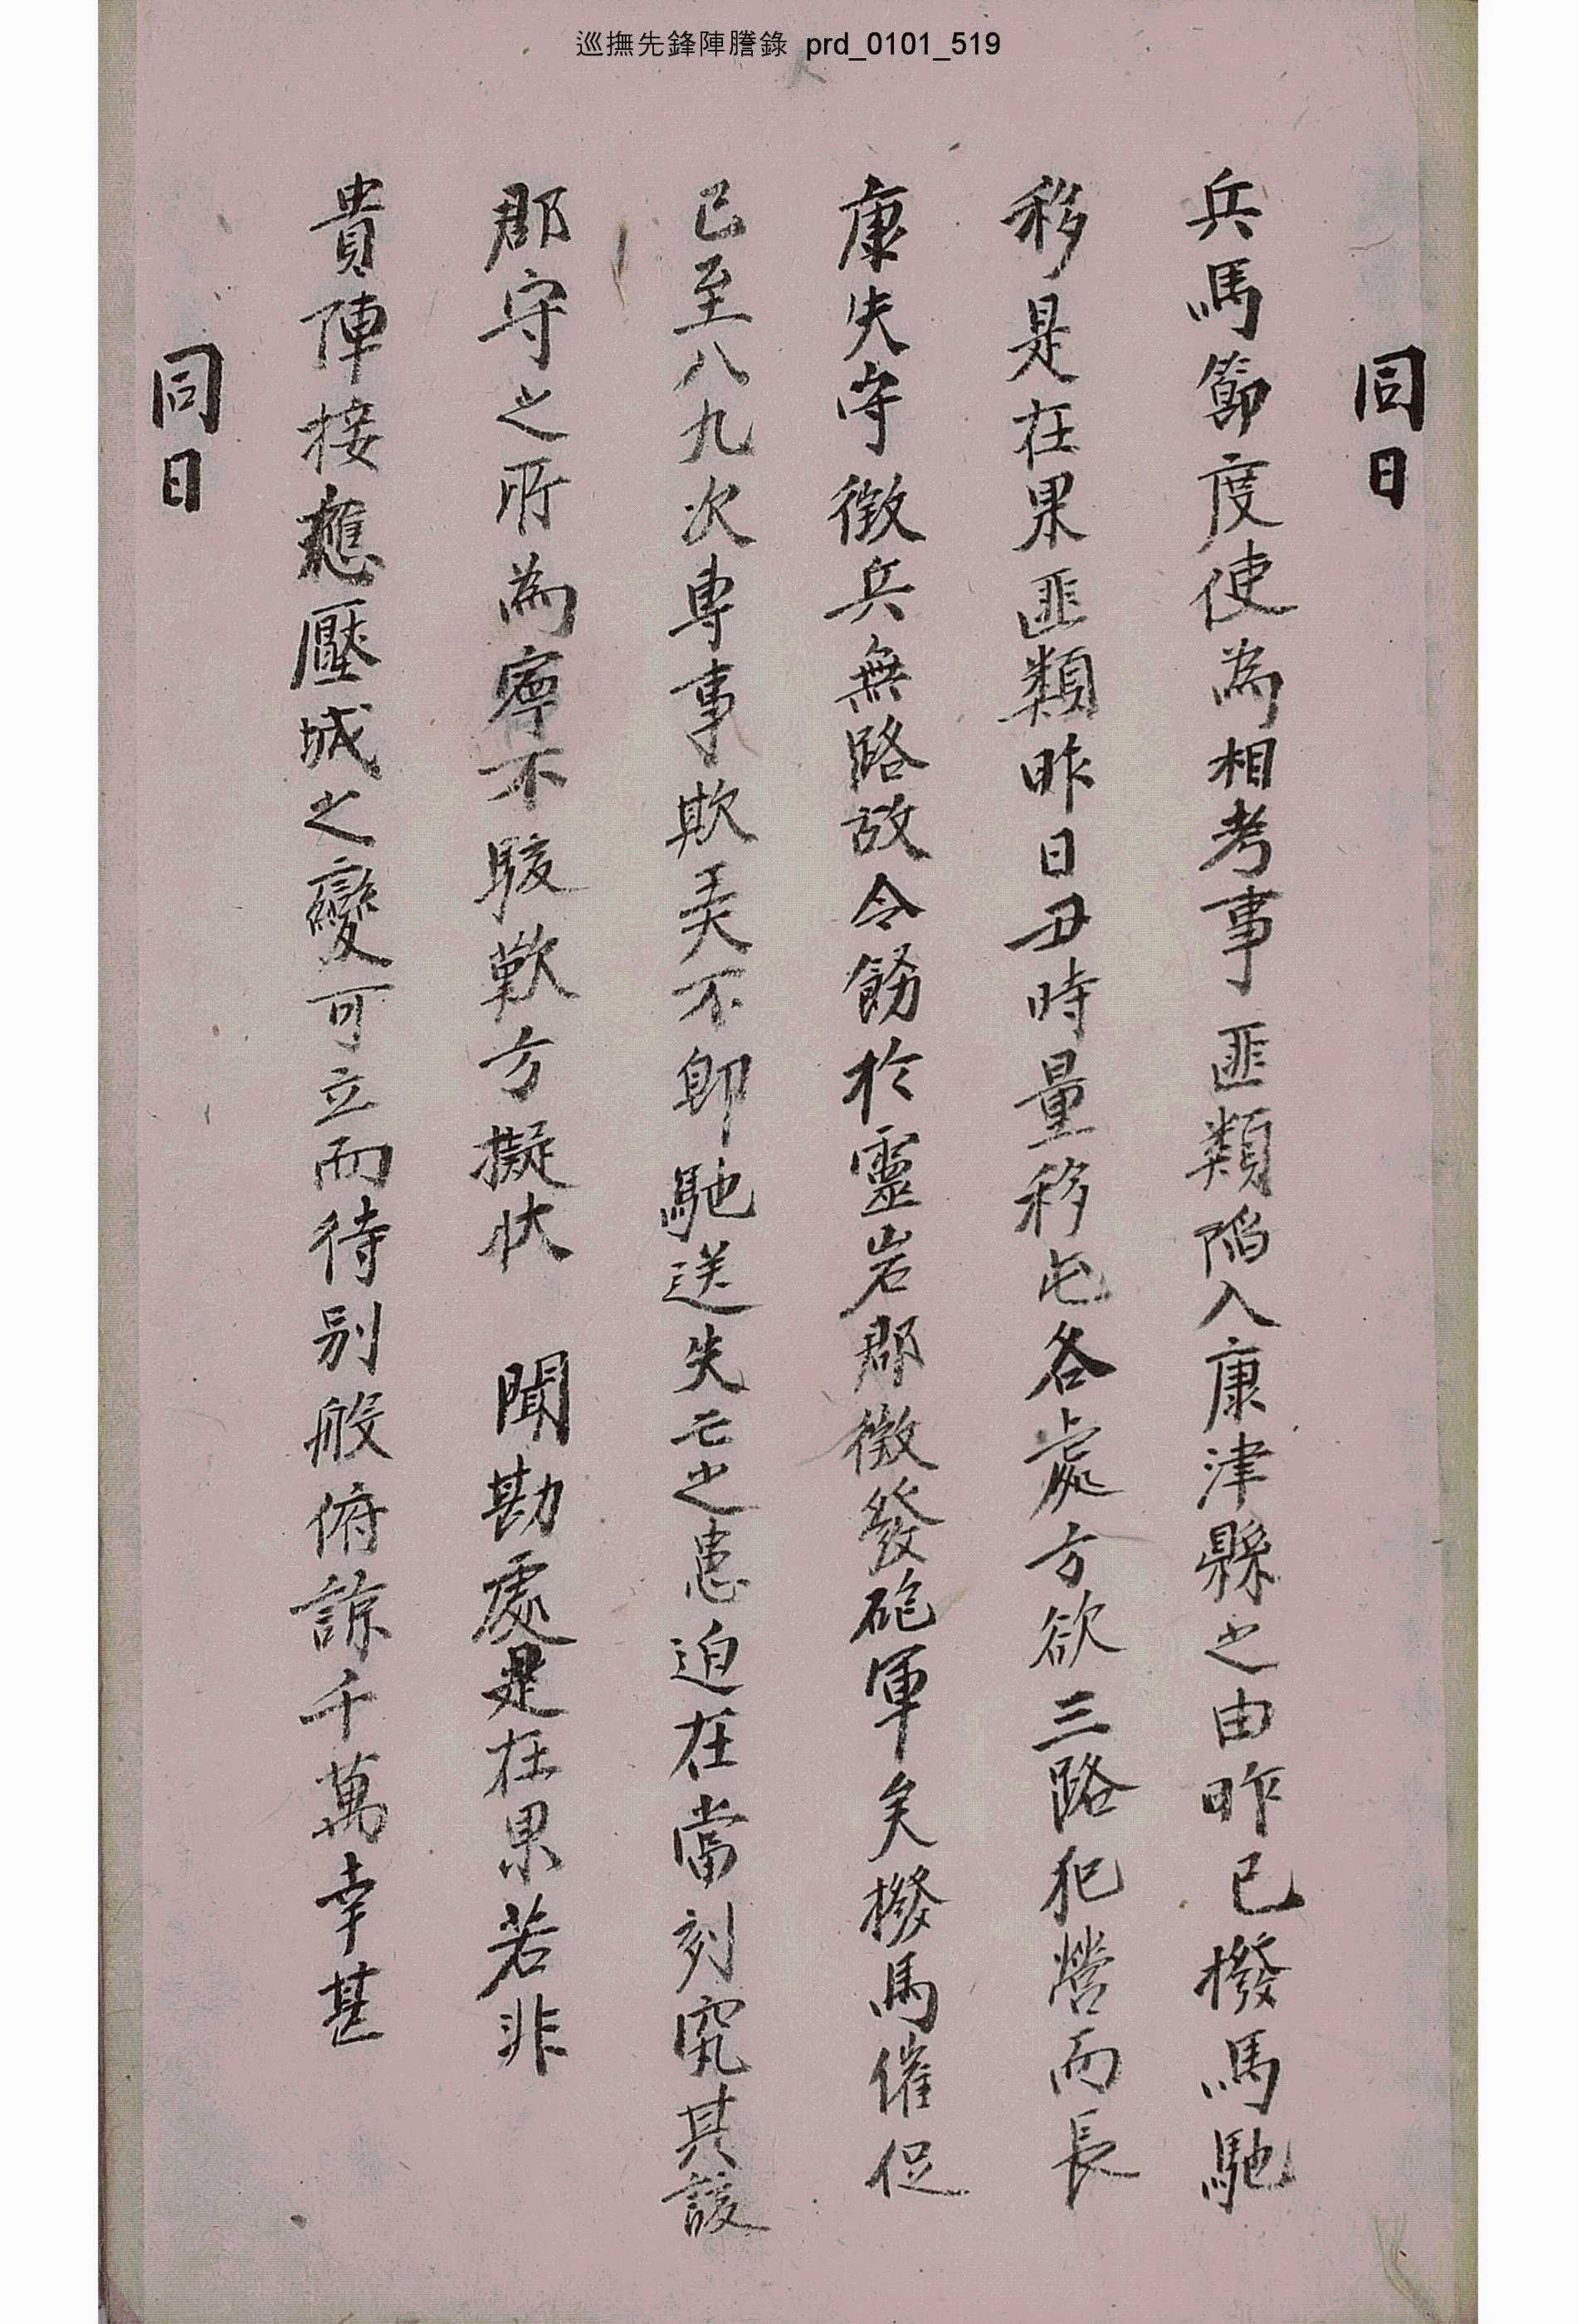 巡撫先鋒陣謄錄 prd_0101_519
同日
兵馬節度使為相考事匪類陷入康津縣之由昨已撥馬馳
移是在果匪類昨日丑時量移屯各處方欲三路犯營而長
康失守徵兵無路故令飭於靈岩郡徵發砲軍矣撥馬催促
已至八九次專事欺弄不卽馳送失亡之患迫在當刻究其該
郡守之所為寧不駭歎方擬狀 聞勘處是在果若非
貴陣接應壓城之變可立而待別般俯諒千萬幸甚
同日